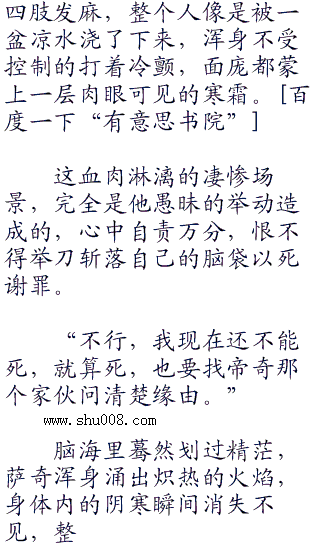 四肢发麻，整个人像是被一
盆凉水浇了下来，浑身不受
控制的打着冷颤，面庞都蒙
上一层肉眼可见的寒霜。[百
度一下“有意思书院”]
这血肉淋漓的凄惨场
景，完全是他愚昧的举动造
成的，心中自责万分，恨不
得举刀斩落自己的脑袋以死
谢罪。
“不行，我现在还不能
死，就算死，也要找帝奇那
个家伙问清楚缘由。”
www.shu008.com
脑海里蓦然划过精茫，
萨奇浑身涌出炽热的火焰，
身体内的阴寒瞬间消失不
见，整